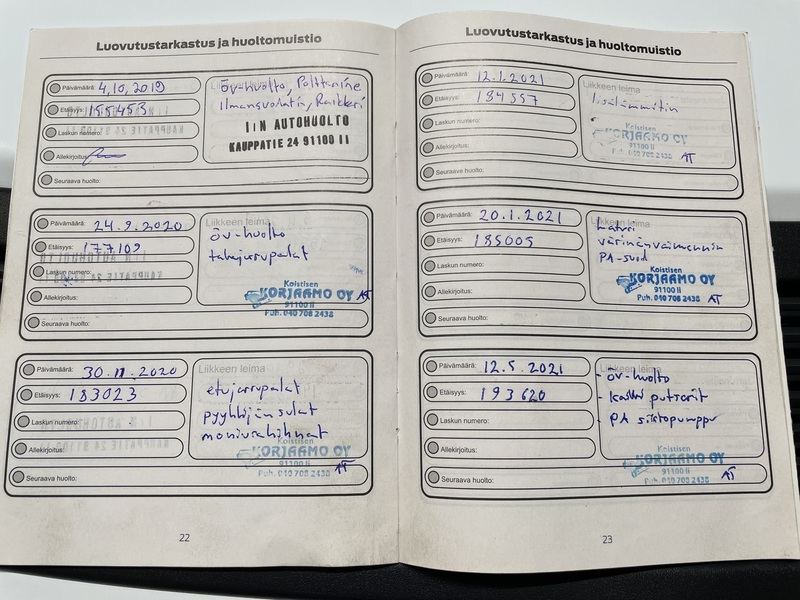 Luovutustarkastus ja huoltomuistio
Päivämäärä: 4.10.2019
Etäisyys: 155453
Laskun numero:
Allekirjoitus:
Seuraava huolto:
Liikkeen leima
öv-huolto, Polttoaine
ilmansuodatin, Raikkeri
IiN AUTOHUOLTO
KAUPPATIE 24 91100 II
Päivämäärä: 24.9.2020
Etäisyys: 177109
Laskun numero:
Allekirjoitus:
Seuraava huolto:
Liikkeen leima
öv-huolto
takajarrupalat
Koistisen
KORJAAMO OY
91100 Ii
Puh. 040 708 2438
AT
Päivämäärä: 30.11.2020
Etäisyys: 183023
Laskun numero:
Allekirjoitus:
Seuraava huolto:
Liikkeen leima
etujarrupalat
pyyhkijän sulat
moniurahihnat
Koistisen
KORJAAMO OY
91100 Ii
Puh. 040 708 2438
AT
22
Luovutustarkastus ja huoltomuistio
Päivämäärä: 12.1.2021
Etäisyys: 184557
Laskun numero:
Allekirjoitus:
Seuraava huolto:
Liikkeen leima
lisälämmitin
Koistisen
KORJAAMO OY
91100 Ii
Puh. 040 708 2438
AT
Päivämäärä: 20.1.2021
Etäisyys: 185005
Laskun numero:
Allekirjoitus:
Seuraava huolto:
Liikkeen leima
värinänvaimennin
PA-suod
Koistisen
KORJAAMO OY
91100 Ii
Puh. 040 708 2438
AT
Päivämäärä: 12.5.2021
Etäisyys: 193620
Laskun numero:
Allekirjoitus:
Seuraava huolto:
Liikkeen leima
- öv-huolto
- kaikki puttorit
- PA siirtopumppu
Koistisen
KORJAAMO OY
91100 Ii
Puh. 040 708 2438
AT
23